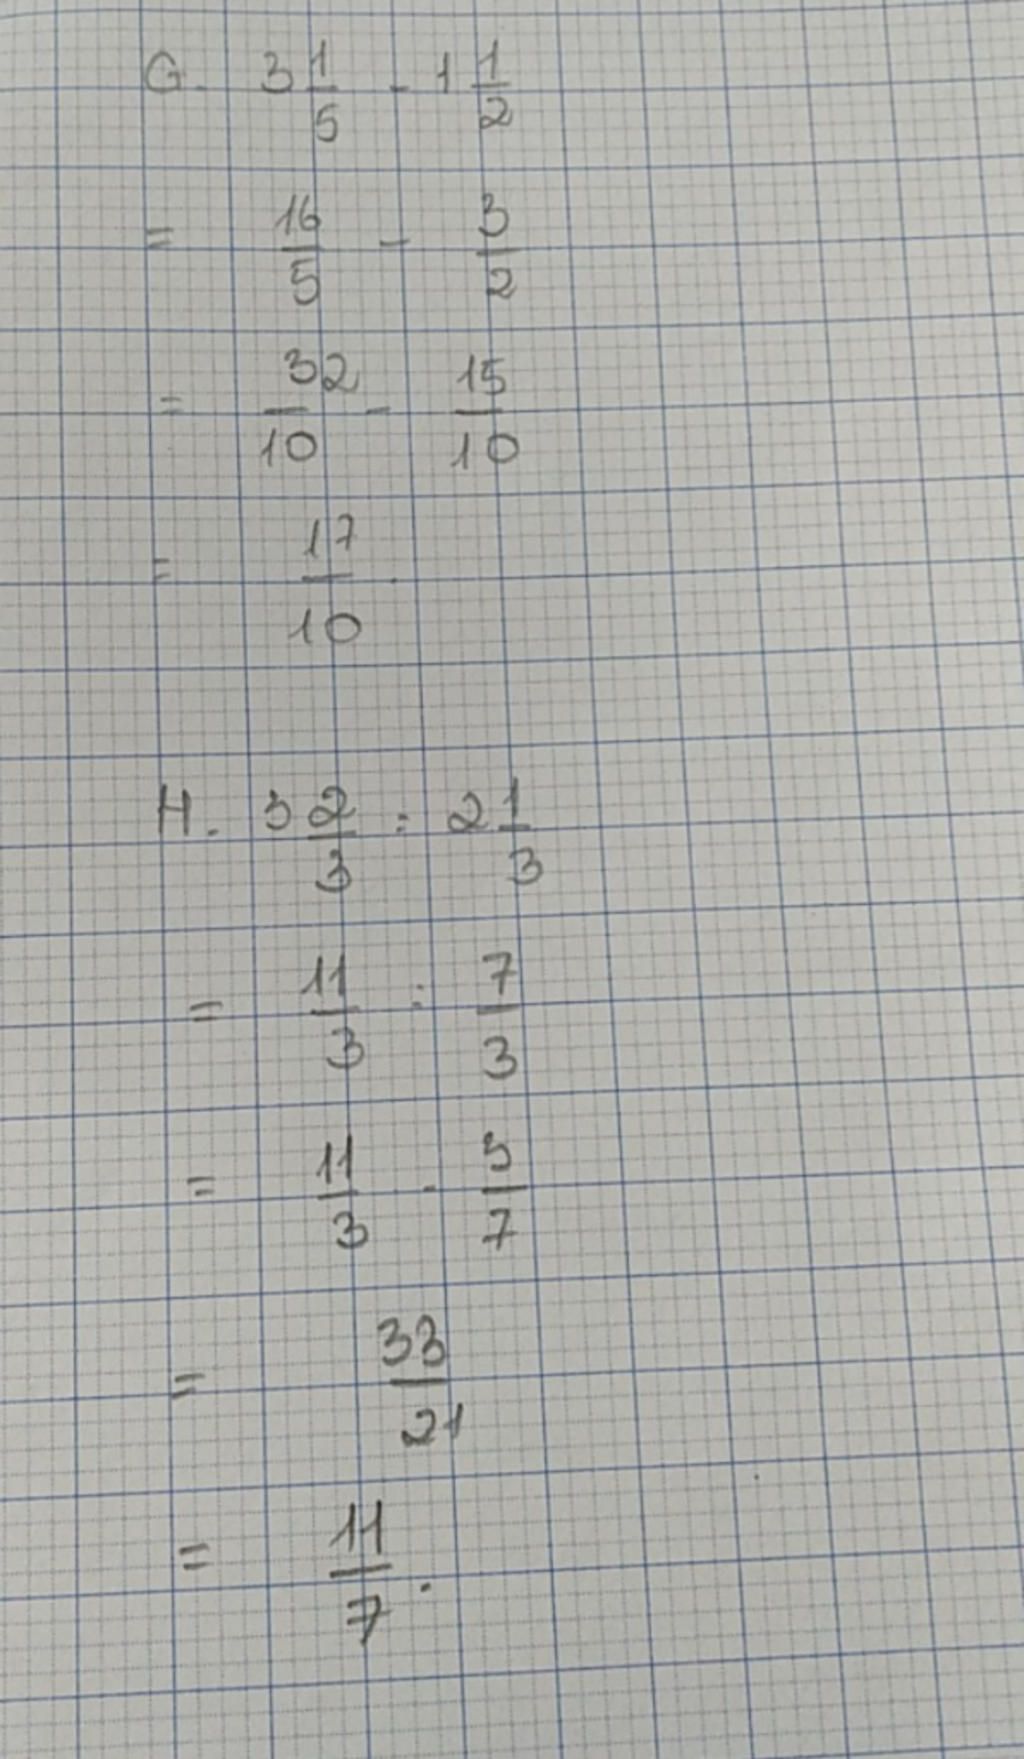 G. 3 1/5 - 1 1/2
= 16/5 - 3/2
= 32/10 - 15/10
= 17/10.
H. 3 2/3 : 2 1/3
= 11/3 : 7/3
= 11/3 . 3/7
= 33/21
= 11/7.